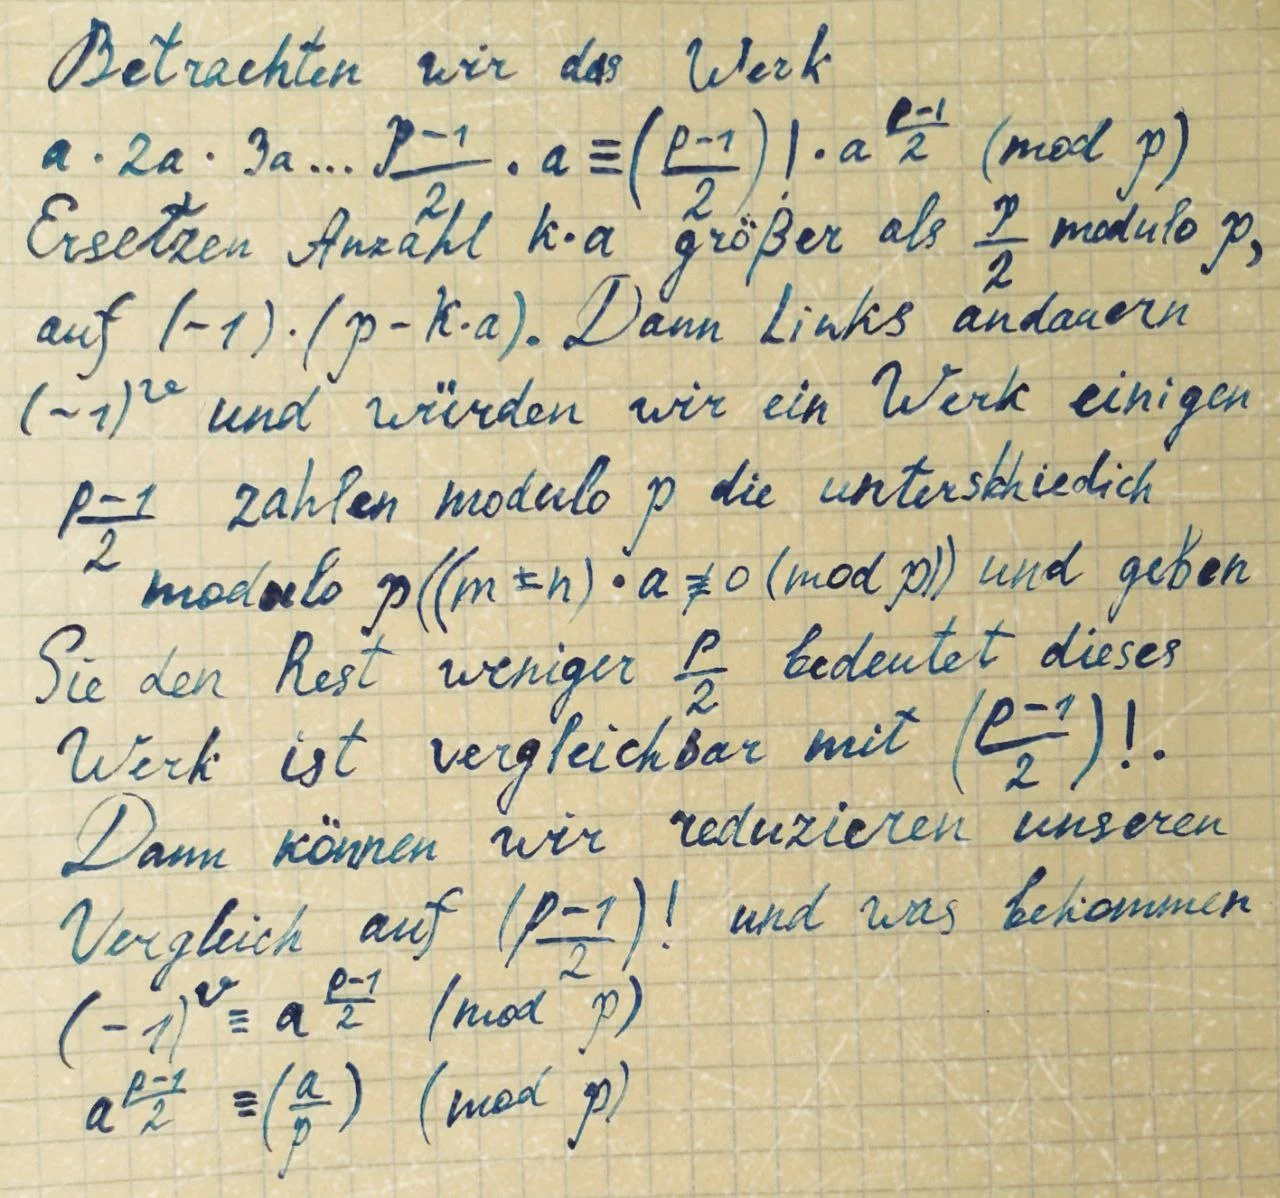 Betrachten wir das Werk
a · 2a · 3a ... (p-1)/2 · a ≡ ((p-1)/2)! · a^((p-1)/2) (mod p)
Ersetzen Anzahl k·a größer als p/2 modulo p,
auf (-1)·(p-k·a). Dann Links andauern
(-1)^v und würden wir ein Werk einigen
(p-1)/2 zahlen modulo p die unterskhiedich
modulo p((m±n)·a≢0(mod p)) und geben
Sie den Rest weniger p/2 bedeutet dieses
Werk ist vergleichbar mit ((p-1)/2)!.
Dann können wir reduzieren unseren
Vergleich auf ((p-1)/2)! und was bekommen
(-1)^v ≡ a^((p-1)/2) (mod p)
a^((p-1)/2) ≡ (a/p) (mod p)